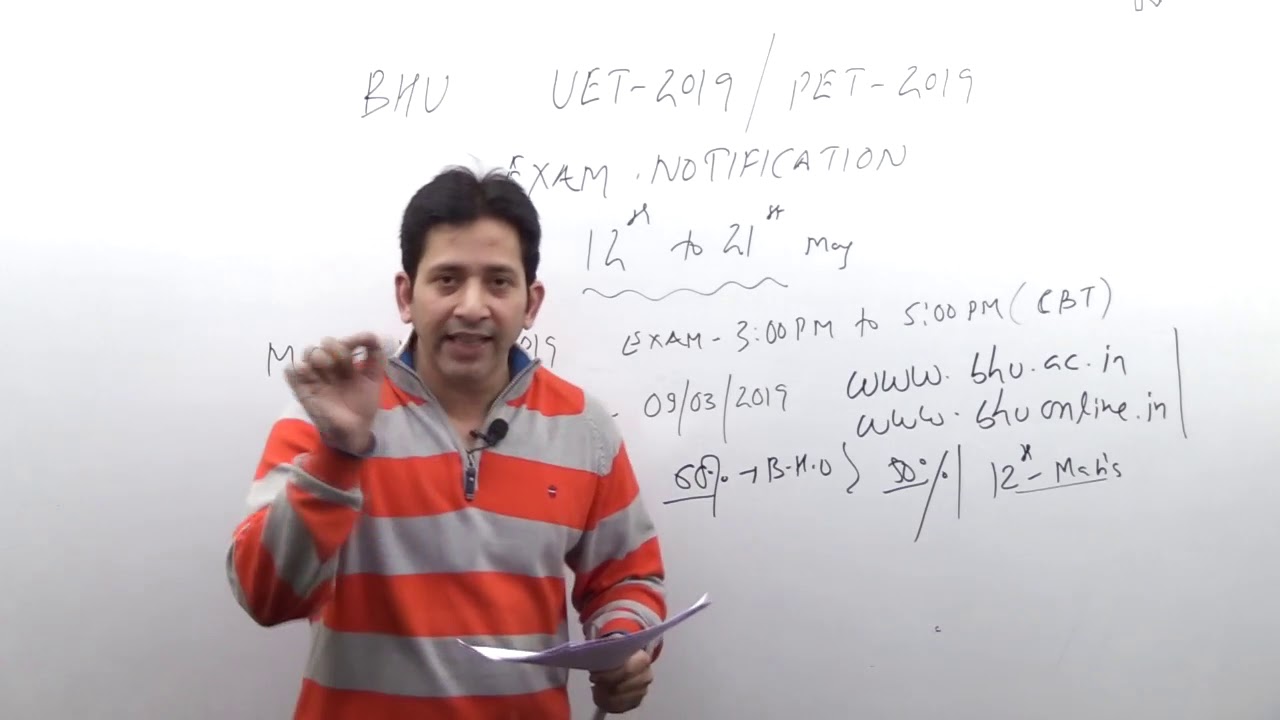 BHU UET-2019/PET-2019
EXAM . NOTIFICATION
12 to 21st May
M 019 EXAM - 3:00 PM to 5:00 PM (CBT)
- 09/03/2019 www.bhu.ac.in
www.bhuonline.in
→ B.H.U } 50% | 12 -